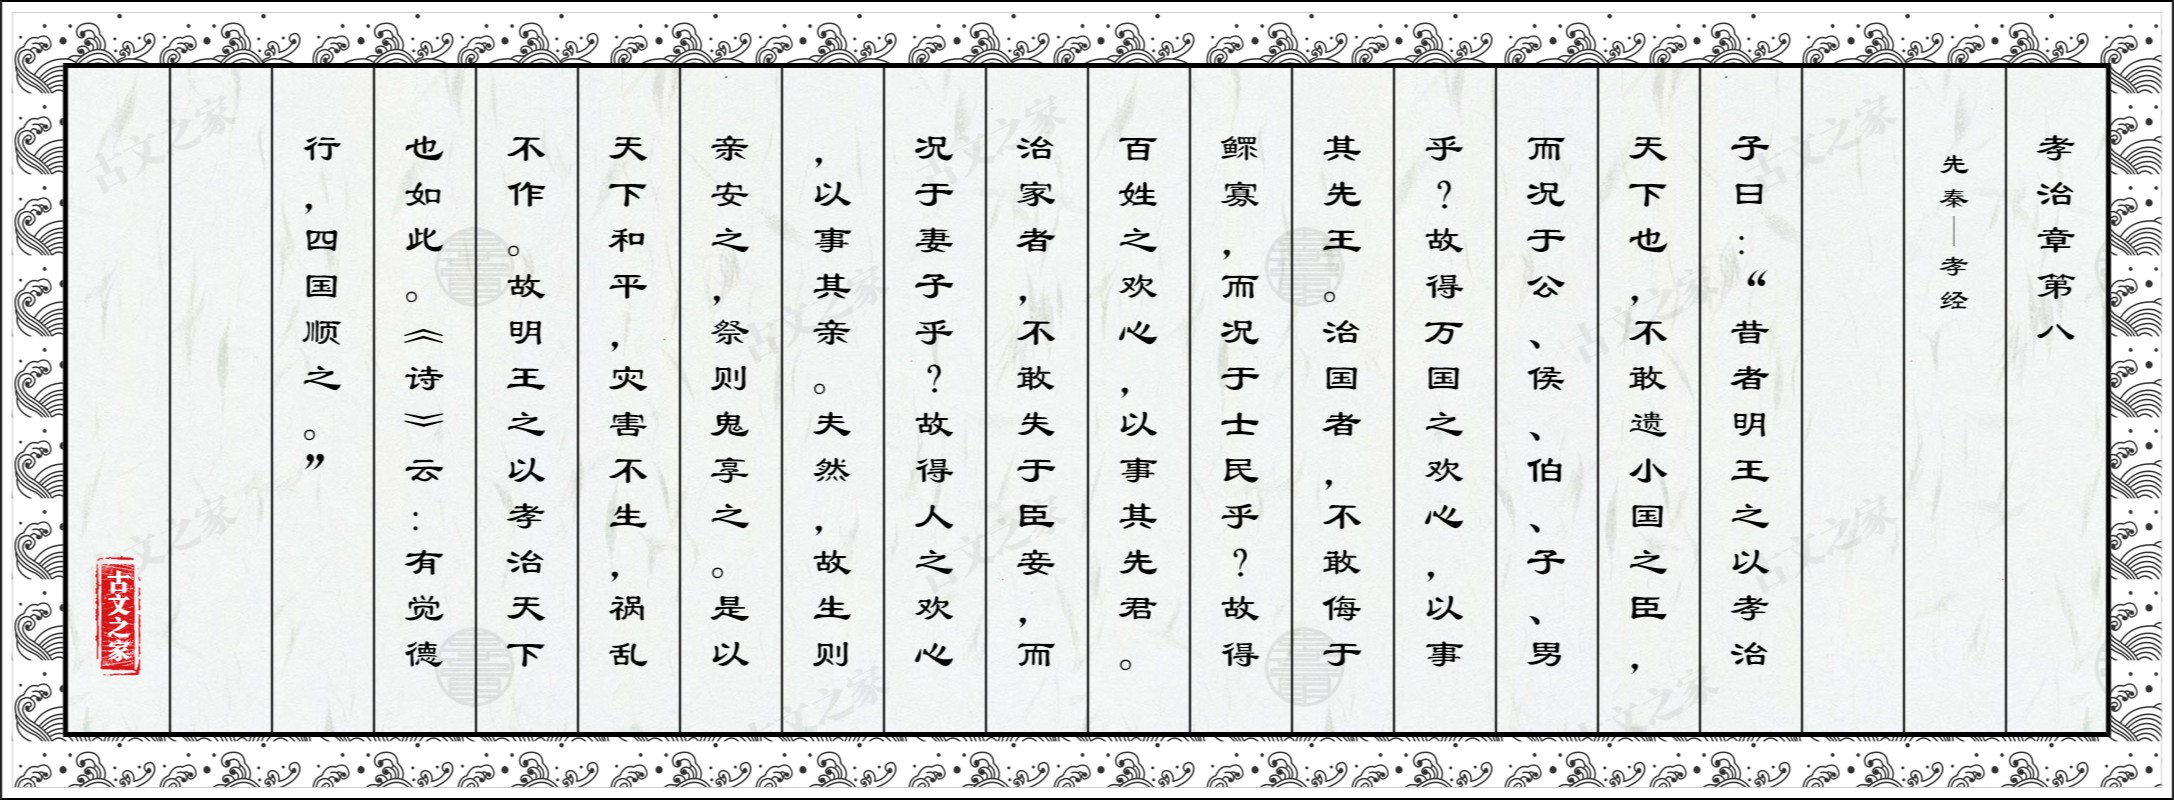 孝治章第八
先秦—孝经
子曰：“昔者明王之以孝治
天下也，不敢遗小国之臣，
而况于公、侯、伯、子、男
乎？故得万国之欢心，以事
其先王。治国者，不敢侮于
鳏寡，而况于士民乎？故得
百姓之欢心，以事其先君。
治家者，不敢失于臣妾，而
况于妻子乎？故得人之欢心
，以事其亲。夫然，故生则
亲安之，祭则鬼享之。是以
天下和平，灾害不生，祸乱
不作。故明王之以孝治天下
也如此。《诗》云：有觉德
行，四国顺之。”
古文之家